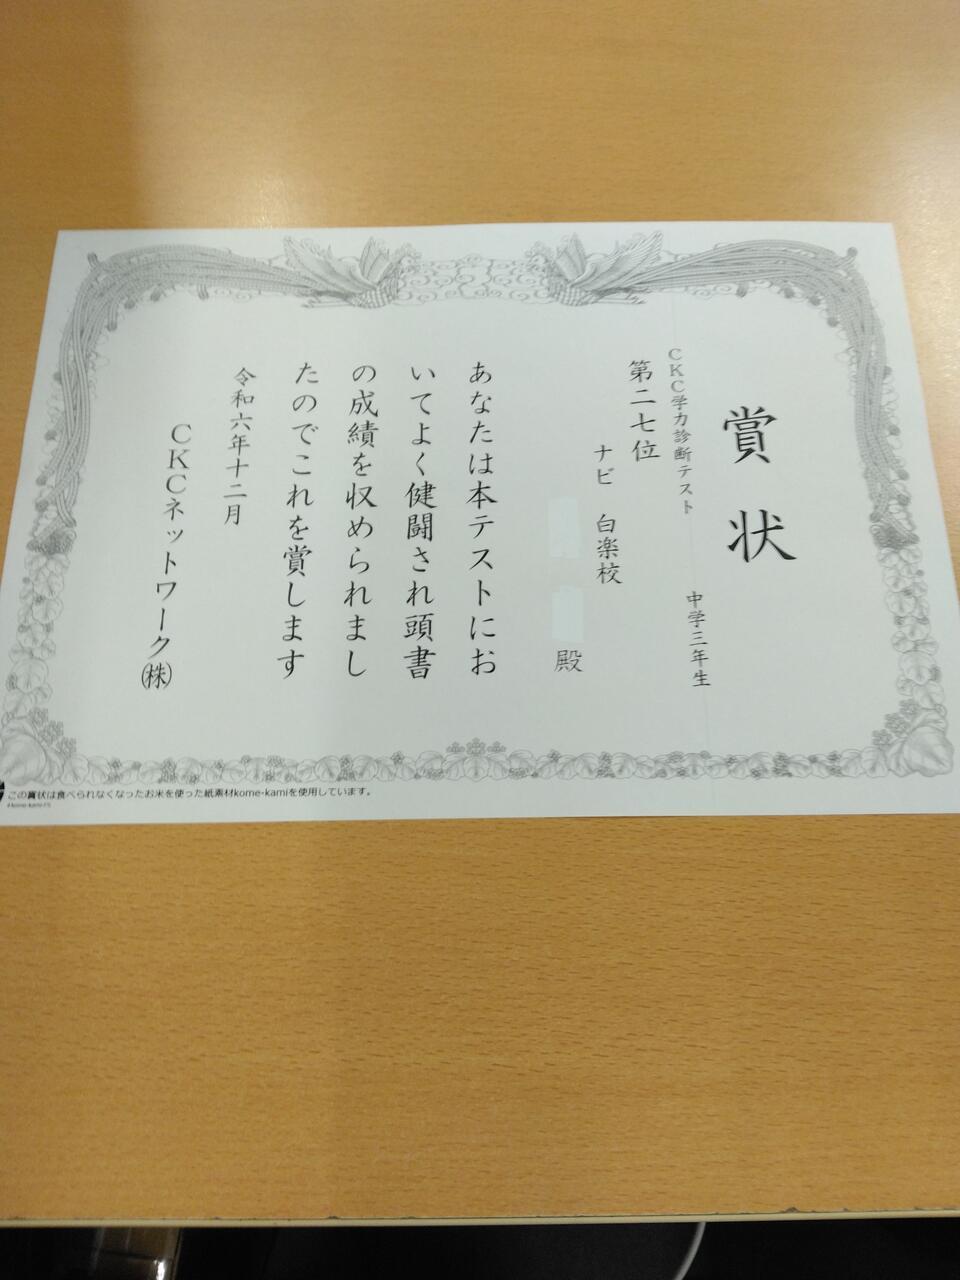 賞状
CKC学力診断テスト 中学三年生
第二七位
ナビ 白楽校
殿
あなたは本テストにお
いてよく健闘され頭書
の成績を収められまし
たのでこれを賞します
令和六年十二月
CKCネットワーク㈱
この賞状は食べられなくなったお米を使った紙素材kome-kamiを使用しています。